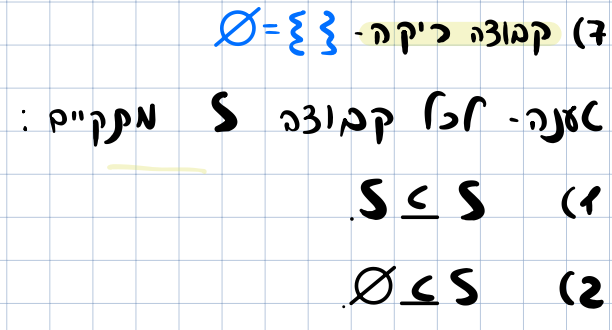 7) קבוצה ריקה - ∅ = { }
טענה - לכל קבוצה S מתקיים :
1) S ⊆ S.
2) ∅ ⊆ S.